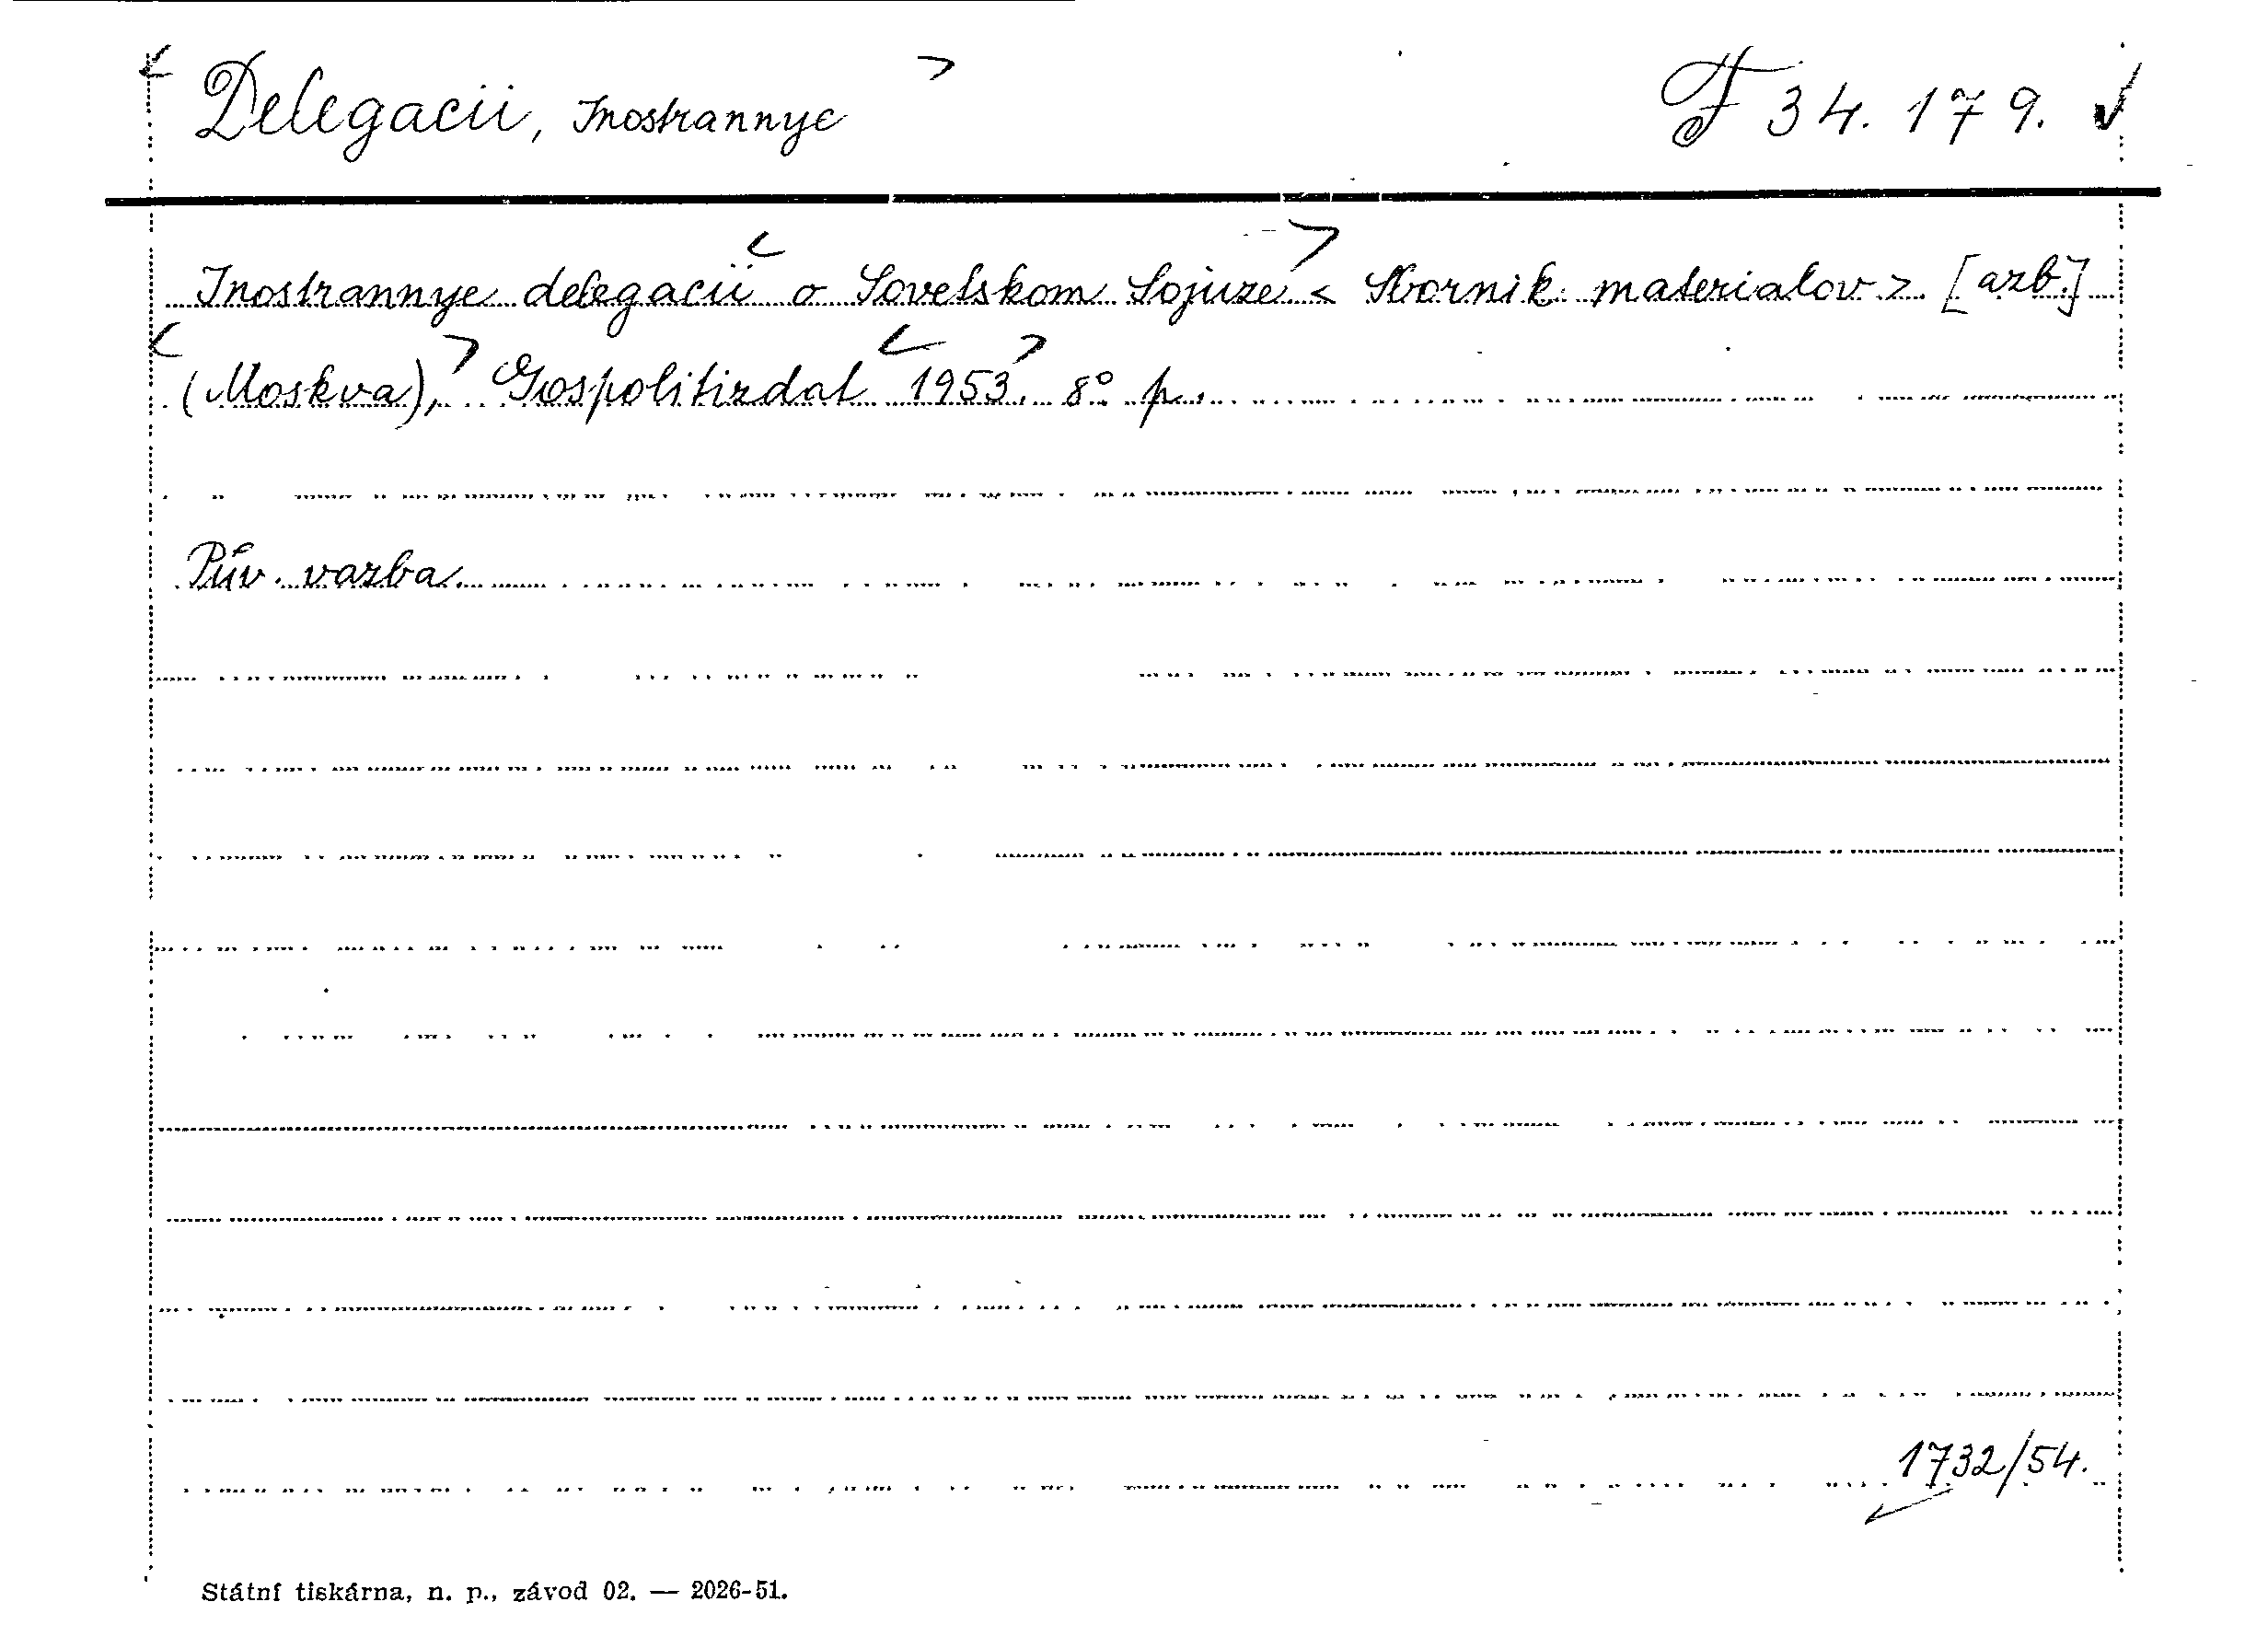 Delegacii, Inostrannye F 34.179.
Inostrannye delegacii o Sovetskom Sojuze < Sbornik materialov > [azb.]
(Moskva), Gospolitizdat 1953. 8° p.
Pův. vazba.
1732/54.
Státní tiskárna, n. p., závod 02. — 2026-51.